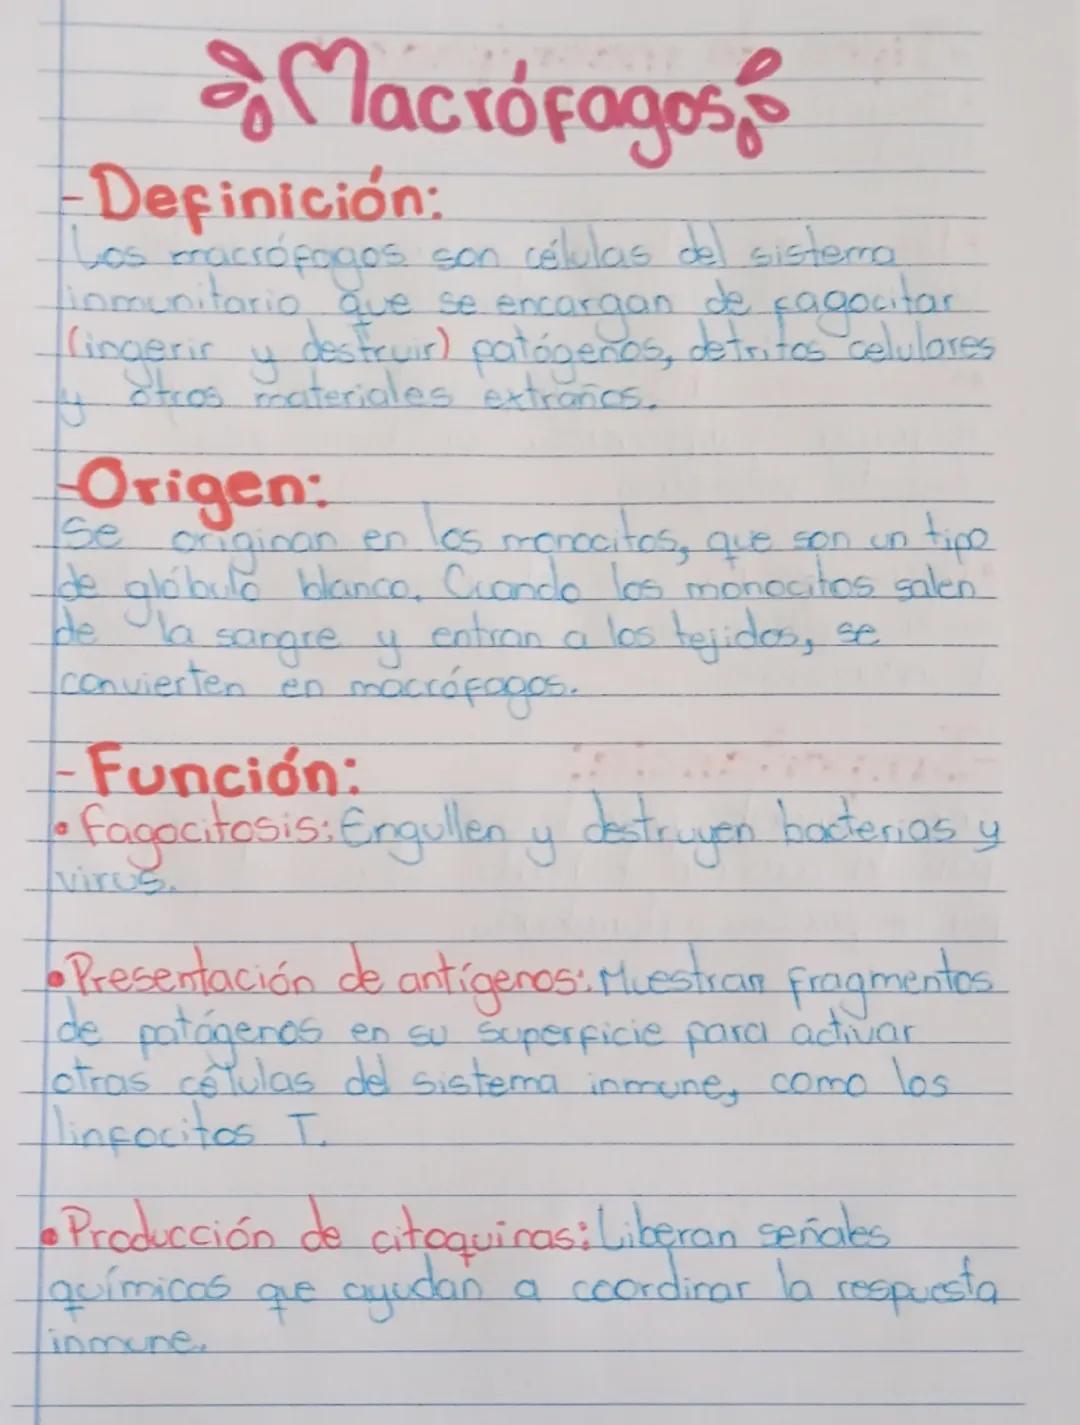 Macrófagos
- Definición:
Los macrófagos son células del sistema
inmunitario que se encargan de fagocitar
(ingerir y destruir) patógenos, detritos celulares
y otros materiales extraños.
- Origen:
Se originan en los monocitos, que son un tipo
de glóbulo blanco. Cuando los monocitos salen
de la sangre y entran a los tejidos, se
convierten en macrófagos.
- Función:
• Fagocitosis: Engullen y destruyen bacterias y
virus.
• Presentación de antígenos: Muestran fragmentos
de patógenos en su superficie para activar
otras células del sistema inmune, como los
linfocitos T.
• Producción de citoquinas: Liberan señales
químicas que ayudan a coordinar la respuesta
inmune.